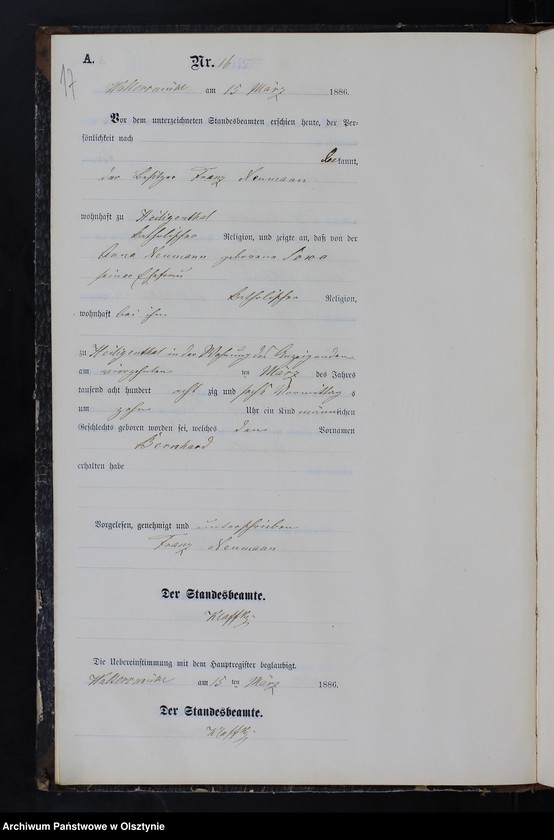 A.
Nr. 16
17
am 15 März 1886.
Vor dem unterzeichneten Standesbeamten erschien heute, der Per-
sönlichkeit nach
bekannt,
der Besitzer Franz Neumann
wohnhaft zu Heiligenthal
katholischer Religion, und zeigte an, daß von der
Anna Neumann geborene Sowa
seiner Ehefrau
katholischer Religion,
wohnhaft bei ihm
zu Heiligenthal in der Wohnung des Anzeigenden
am vierzehnten ten März des Jahres
tausend acht hundert acht zig und sechs Vormittag s
um zehn Uhr ein Kind männlichen
Geschlechts geboren worden sei, welches den Vornamen
Bernhard
erhalten habe
Vorgelesen, genehmigt und unterschrieben
Franz Neumann
Der Standesbeamte.
Die Uebereinstimmung mit dem Hauptregister beglaubigt.
am 15 ten März 1886.
Der Standesbeamte.
Archiwum Państwowe w Olsztynie